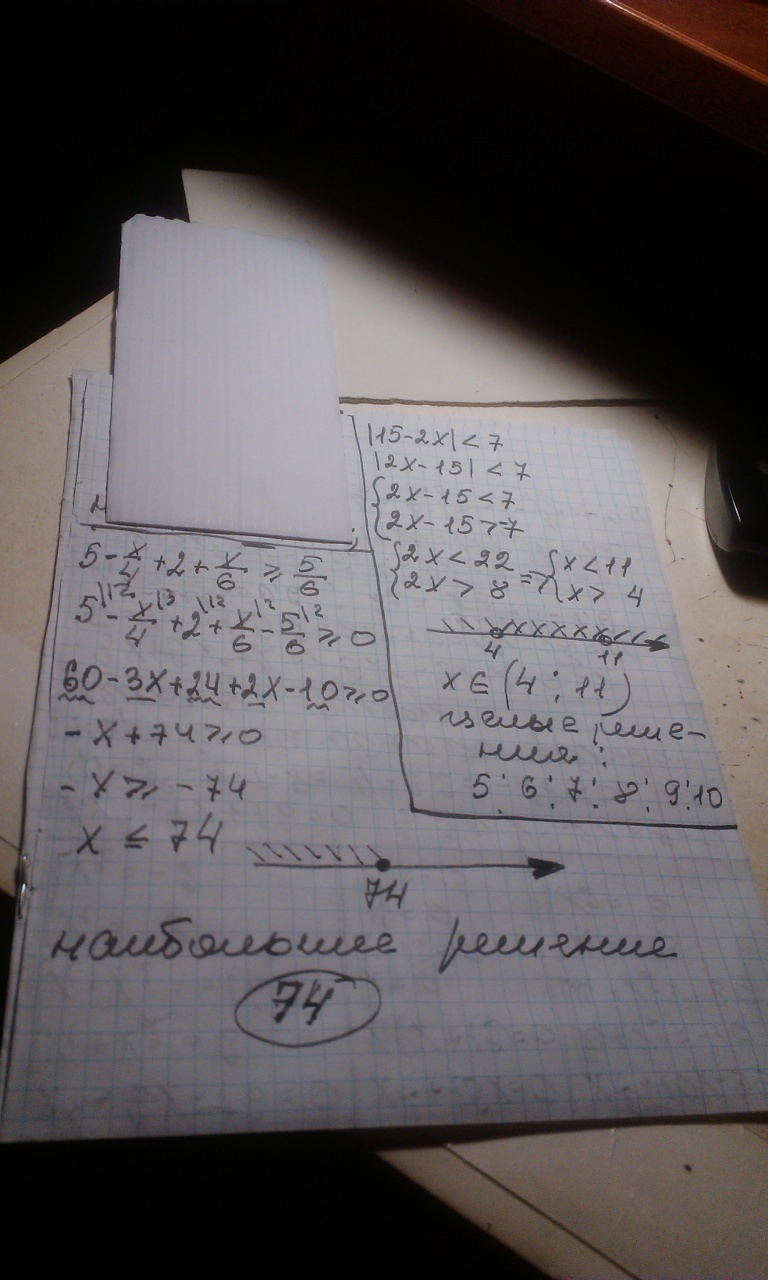 5 - x/4 + 2 + x/6 ≥ 5/6
5\12 - x/4\3 + 2\12 + x/6\2 - 5/6\2 ≥ 0
60 - 3x + 24 + 2x - 10 ≥ 0
- x + 74 ≥ 0
- x ≥ - 74
x ≤ 74
74
наибольшее решение
74
|15 - 2x| < 7
|2x - 15| < 7
{2x - 15 < 7
{2x - 15 > -7
{2x < 22 => {x < 11
{2x > 8 {x > 4
4 11
x ∈ (4 ; 11)
целые реше-
ния:
5; 6; 7; 8; 9; 10